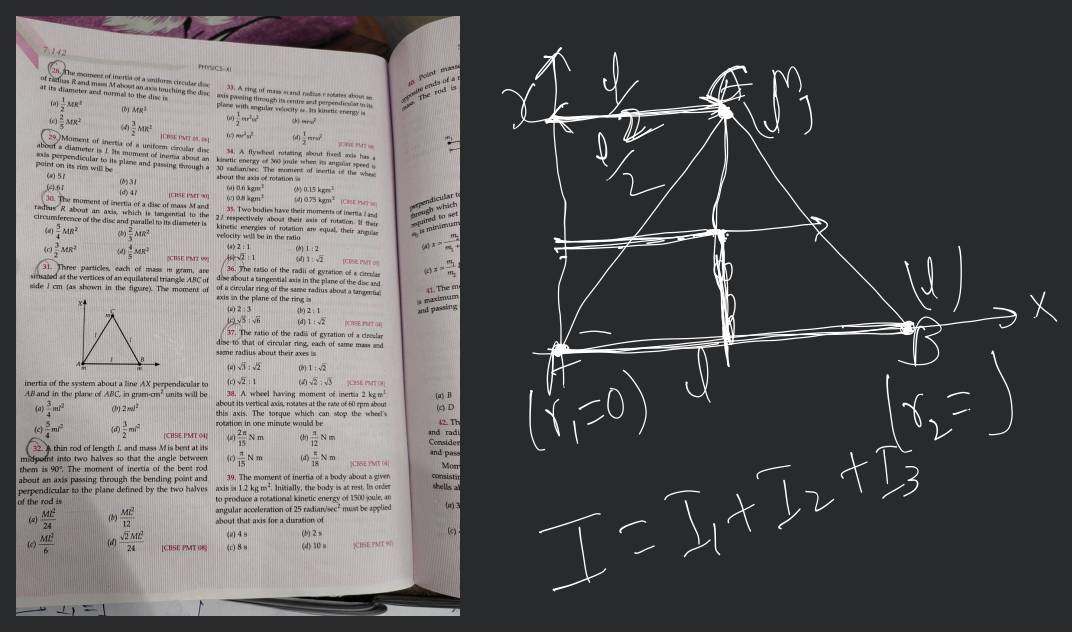 7.142
PHYSICS-XI
28. The moment of inertia of a uniform circular disc
of radius R and mass M about an axis touching the disc
at its diameter and normal to the disc is
(a) 1/2 MR² (b) MR²
(c) 2/5 MR² (d) 3/2 MR²
[CBSE PMT 05, 06]
29. Moment of inertia of a uniform circular disc
about a diameter is I. Its moment of inertia about an
axis perpendicular to its plane and passing through a
point on its rim will be
(a) 5I (b) 3I
(c) 6I (d) 4I [CBSE PMT 90]
30. The moment of inertia of a disc of mass M and
radius R about an axis, which is tangential to the
circumference of the disc and parallel to its diameter is
(a) 5/4 MR² (b) 2/3 MR²
(c) 3/2 MR² (d) 4/5 MR² [CBSE PMT 99]
31. Three particles, each of mass m gram, are
situated at the vertices of an equilateral triangle ABC of
side l cm (as shown in the figure). The moment of
X
m C
l l
A l B
m m
inertia of the system about a line AX perpendicular to
AB and in the plane of ABC, in gram-cm² units will be
(a) 3/4 ml² (b) 2 ml²
(c) 5/4 ml² (d) 3/2 ml² [CBSE PMT 04]
32. A thin rod of length L and mass M is bent at its
midpoint into two halves so that the angle between
them is 90°. The moment of inertia of the bent rod
about an axis passing through the bending point and
perpendicular to the plane defined by the two halves
of the rod is
(a) ML²/24 (b) ML²/12
(c) ML²/6 (d) √2 ML²/24 [CBSE PMT 08]
33. A ring of mass m and radius r rotates about an
axis passing through its centre and perpendicular to its
plane with angular velocity ω. Its kinetic energy is
(a) 1/2 mr²ω² (b) mrω²
(c) mr²ω² (d) 1/2 mrω²
34. A flywheel rotating about fixed axis has a
kinetic energy of 360 joule when its angular speed is
30 radian/sec. The moment of inertia of the wheel
about the axis of rotation is
(a) 0.6 kgm² (b) 0.15 kgm²
(c) 0.8 kgm² (d) 0.75 kgm²
35. Two bodies have their moments of inertia I and
2I respectively about their axis of rotation. If their
kinetic energies of rotation are equal, their angular
velocity will be in the ratio
(a) 2 : 1 (b) 1 : 2
(c) √2 : 1 (d) 1 : √2
36. The ratio of the radii of gyration of a circular
disc about a tangential axis in the plane of the disc and
of a circular ring of the same radius about a tangential
axis in the plane of the ring is
(a) 2 : 3 (b) 2 : 1
(c) √5 : √6 (d) 1 : √2 [CBSE PMT 04]
37. The ratio of the radii of gyration of a circular
disc to that of circular ring, each of same mass and
same radius about their axes is
(a) √3 : √2 (b) 1 : √2
(c) √2 : 1 (d) √2 : √3 [CBSE PMT 08]
38. A wheel having moment of inertia 2 kg m²
about its vertical axis, rotates at the rate of 60 rpm about
this axis. The torque which can stop the wheel's
rotation in one minute would be
(a) 2π/15 N m (b) π/12 N m
(c) π/15 N m (d) π/18 N m [CBSE PMT 04]
39. The moment of inertia of a body about a given
axis is 1.2 kg m². Initially, the body is at rest. In order
to produce a rotational kinetic energy of 1500 joule, an
angular acceleration of 25 radian/sec² must be applied
about that axis for a duration of
(a) 4 s (b) 2 s
(c) 8 s (d) 10 s [CBSE PMT 90]
40. Point mass
opposite ends of a
mass. The rod is
perpendicular to
through which
required to set
m₂ is minimum
41. The m
is maximum
and passing
(a) B
(c) D
42. Th
and radi
Consider
and pass
Mom
consistin
shells a
(a) 3
(c)
l/2
l
B
(l)
X
(r₁=0)
(r₂= )
I = I₁+I₂+I₃